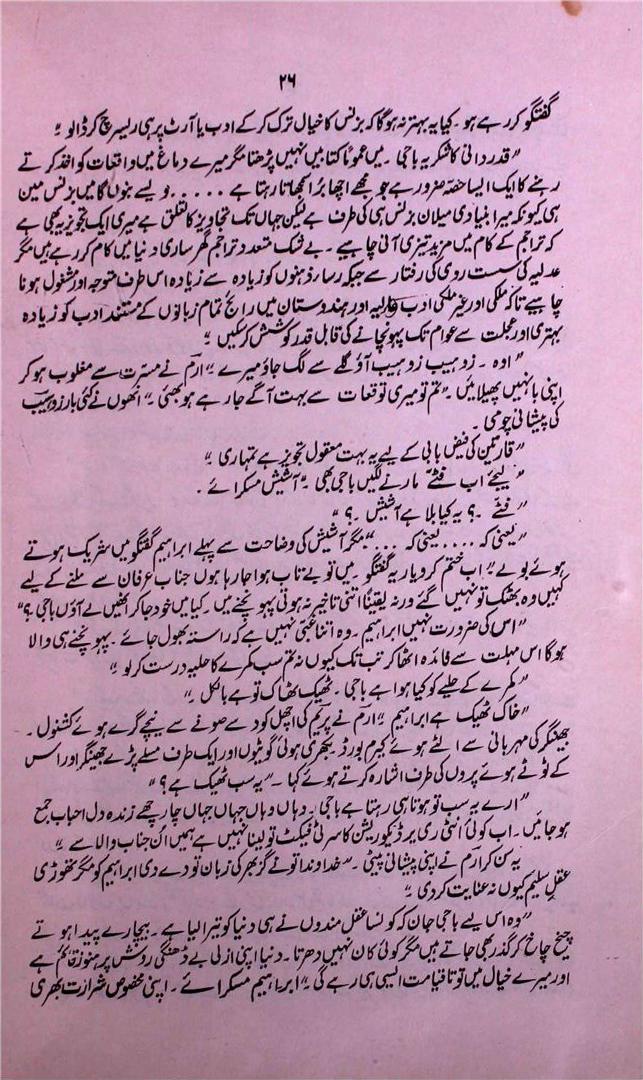 ۲۶
گفتگو کر رہے ہو ۔ کیا یہ بہتر نہ ہوگا کہ بزنس کا خیال ترک کر کے ادب یا آرٹ پر ہی ریسرچ کر ڈالو ۔"
"قدر دانی کا شکریہ باجی ۔ میں عموماً کتابیں نہیں پڑھتا مگر میرے دماغ میں واقعات کو اخذ کرتے
رہنے کا ایک ایسا حصّہ ضرور ہے جو مجھے اچھا بُرا سمجھاتا رہتا ہے ..... ویسے بنوں گا میں بزنس مین
ہی کیونکہ میرا بنیادی میلان بزنس ہی کی طرف ہے لیکن جہاں تک تجاویز کا تعلق ہے میری ایک تجویز یہ بھی ہے
کہ تراجم کے کام میں مزید تیزی آنی چاہیے ۔ بے شک متعدد تراجم گھر ساری دنیا میں کام کر رہے ہیں مگر
عدلیہ کی سست روی کی رفتار سے جبکہ رسا ذہنوں کو زیادہ سے زیادہ اس طرف متوجہ اور مشغول ہونا
چاہیے تاکہ ملکی اور غیر ملکی ادب عالیہ اور ہندوستان میں رائج تمام زبانوں کے مستند ادب کو زیادہ
بہتری اور عجلت سے عوام تک پہونچانے کی قابل قدر کوشش کر سکیں ۔"
"اوہ ۔ زوہیب زوہیب آؤ گلے سے لگ جاؤ میرے ۔" ارم نے مسرت سے مغلوب ہو کر
اپنی بانہیں پھیلائیں ۔ "تم تو میری توقعات سے بہت آگے جا رہے ہو بھئی ۔" انھوں نے کئی بار زوہیب
کی پیشانی چومی ۔
"قارئین کی فیض یابی کے لیے یہ بہت معقول تجویز ہے تمہاری ۔"
"لیجئے اب فٹّے مارنے لگیں باجی بھی ۔" آشیش مسکرائے ۔
"فٹّے ۔؟ یہ کیا بلا ہے آشیش ۔؟"
"یعنی کہ .... یعنی کہ ...." مگر آشیش کی وضاحت سے پہلے ابراہیم گفتگو میں شریک ہوتے
ہوئے بولے "اب ختم کرو یار یہ گفتگو ۔ میں تو بے تاب ہوا جا رہا ہوں جناب عرفان سے ملنے کے لیے
کہیں وہ بھٹک تو نہیں گئے ورنہ یقیناً اتنی تاخیر نہ ہوتی پہونچنے میں ۔ کیا میں خود جا کر انھیں لے آؤں باجی ؟"
"اس کی ضرورت نہیں ابراہیم ۔ وہ اتنا غبی نہیں ہے کہ راستہ بھول جائے ۔ پہونچنے ہی والا
ہوگا اس مہلت سے فائدہ اٹھا کر تب تک کیوں نہ تم سب کمرے کا حلیہ درست کر لو ۔"
"کمرے کے حلیے کو کیا ہوا ہے باجی ۔ ٹھیک ٹھاک تو ہے بالکل ۔"
"خاک ٹھیک ہے ابراہیم ۔" ارم نے پریم کی اچھل کود سے صوفے سے نیچے گرے ہوئے کشنوں ۔
جھینگر کی مہربانی سے الٹے ہوئے کیرم بورڈ ۔ بکھری ہوئی گوٹوں اور ایک طرف مسلے پڑے جھینگر اور اس
کے ٹوٹے ہوئے پروں کی طرف اشارہ کرتے ہوئے کہا ۔ "یہ سب ٹھیک ہے ؟"
"ارے یہ سب تو ہوتا ہی رہتا ہے باجی ۔ وہاں وہاں جہاں جہاں چار چھے زندہ دل احباب جمع
ہو جائیں ۔ اب کوئی انٹی ریر ڈیکوریشن کا سرٹی فیکٹ تو لینا نہیں ہے ہمیں اُن جناب والا سے ۔"
یہ سن کر ارم نے اپنی پیشانی پیٹی ۔ "خداوندا تو نے گز بھر کی زبان تو دے دی ابراہیم کو مگر تھوڑی
عقلِ سلیم کیوں نہ عنایت کر دی ۔"
"وہ اس لیے باجی جان کہ کونسا عقل مندوں نے ہی دنیا کو تیرا لیا ہے ۔ بیچارے پیدا ہوتے
چیخ چاخ کر گذر بھی جاتے ہیں مگر کوئی کان نہیں دھرتا ۔ دنیا اپنی ازلی بے ڈھنگی روش پر ہنوز قائم ہے
اور میرے خیال میں تو تا قیامت ایسی ہی رہے گی ۔" ابراہیم مسکرائے ۔ اپنی مخصوص شرارت بھری